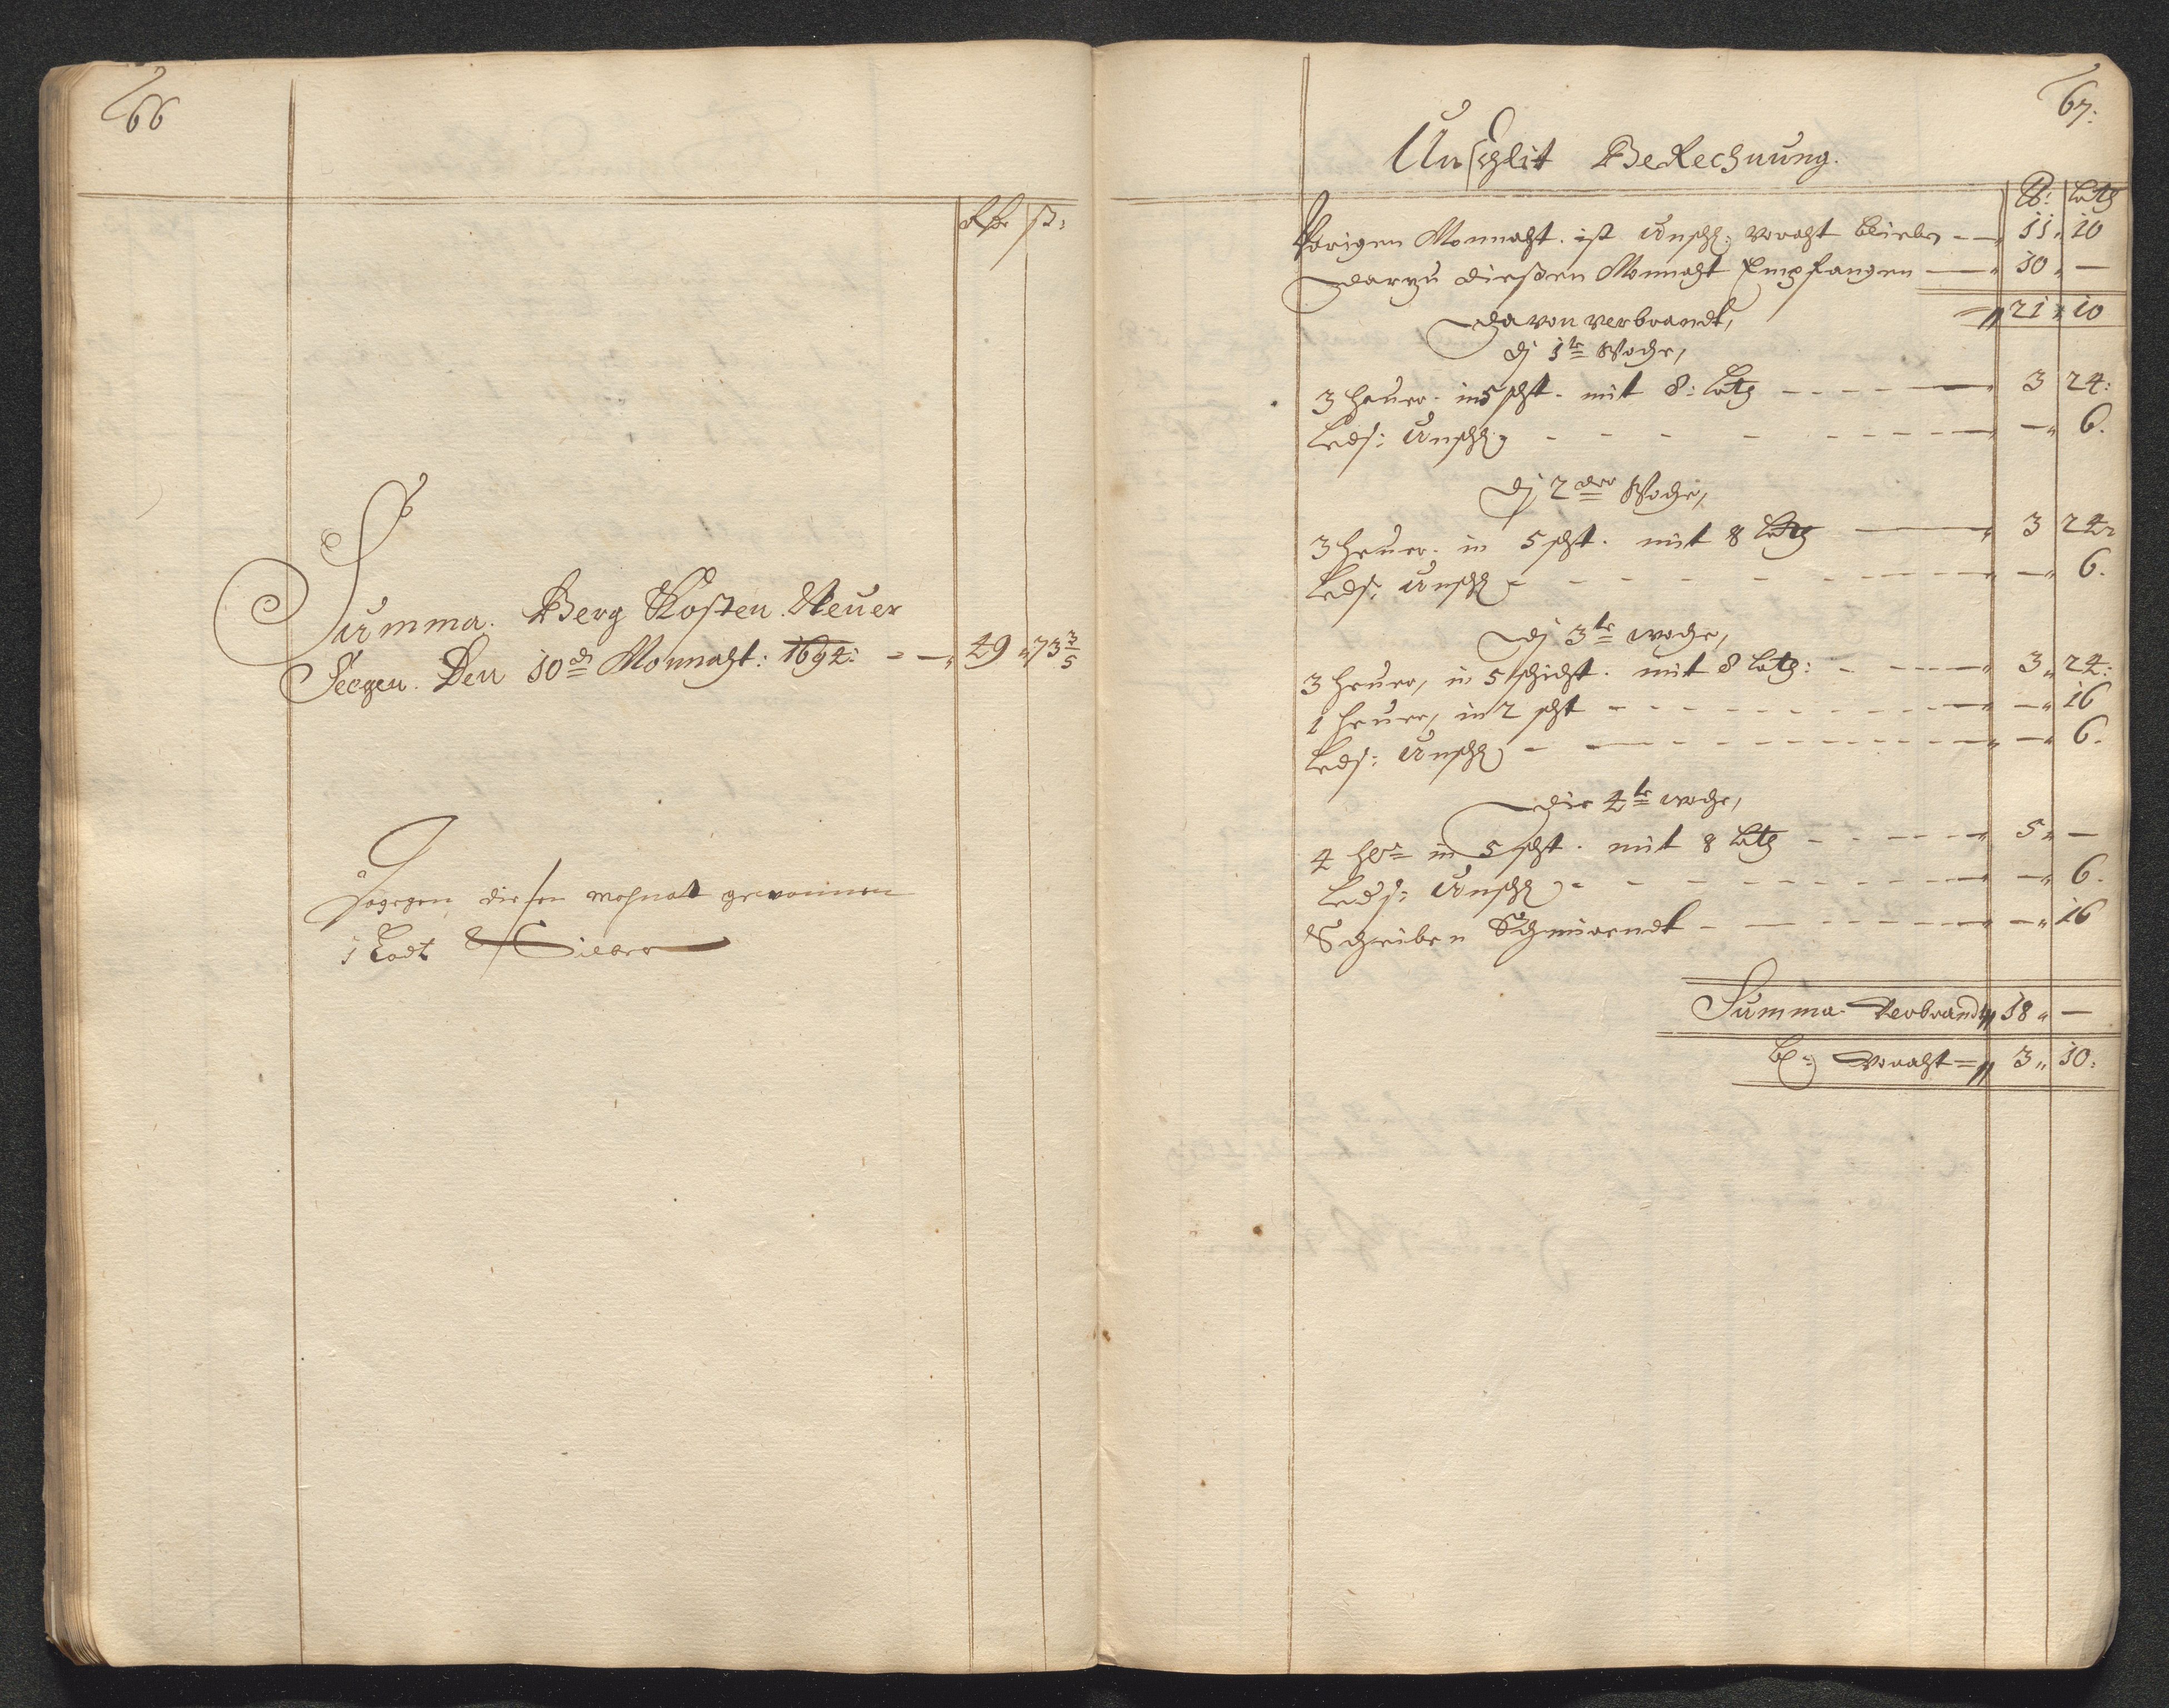 66
Rd ß:
Summa. Berg Kosten Neuer
Seegen. Den 10den Monnaht: 1694: 49 73 3/5
Dagegen diesen mohnat gewonnen
1 Lodt Silber
67:
Unschlit BeRechnung.
lb: Loth
Vorigen Monnaht. ist Unschl: Voraht blieben 11 10
Darzu dießen Monnaht Empfangen 10 —
21 10
Davon verbrandt,
Dj 1te Woche,
3 heuer. in 5 scht. mit 8: Loth 3 24:
Leds: Unschl: — 6.
Dj 2der Woche,
3 heuer. in 5 scht. mit 8 Loth 3 24
Leds: Unschl — 6.
Dj 3te woche,
3 heuer, in 5 schicht. mit 8 Loth: 3 24:
1 heuer, in 2 scht — 16
Leds: Unschl — 6.
Die 4te woche,
4 hr in 5 scht. mit 8 Loth 5 —
Leds: Unschl — 6.
Scheiben Schmirendt — 16
Summa Verbrandt 18 —
Bl: Voraht 3 10: